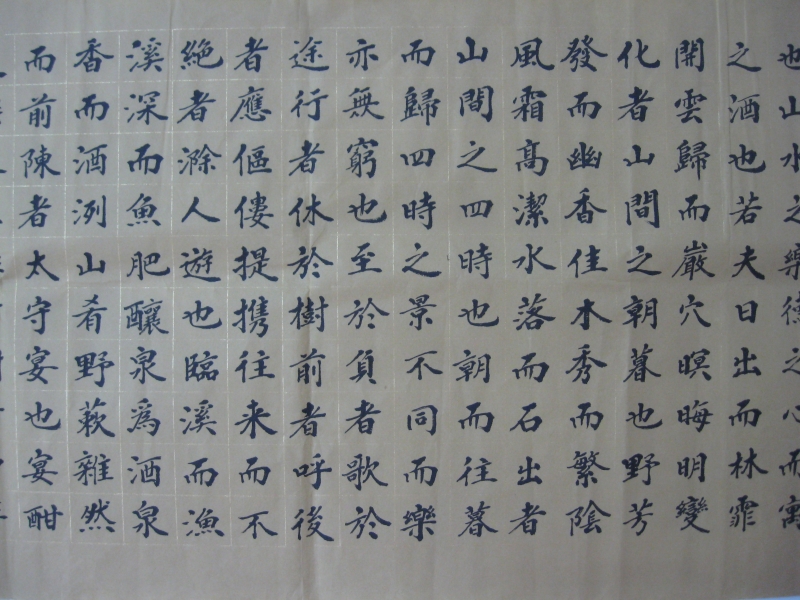 也山水之樂得之心而寓
之酒也若夫日出而林霏
開雲歸而巖穴暝晦明變
化者山間之朝暮也野芳
發而幽香佳木秀而繁陰
風霜高潔水落而石出者
山間之四時也朝而往暮
而歸四時之景不同而樂
亦無窮也至於負者歌於
途行者休於樹前者呼後
者應傴僂提携往来而不
絶者滁人遊也臨溪而漁
溪深而魚肥釀泉為酒泉
香而酒洌山肴野蔌雜然
而前陳者太守宴也宴酣